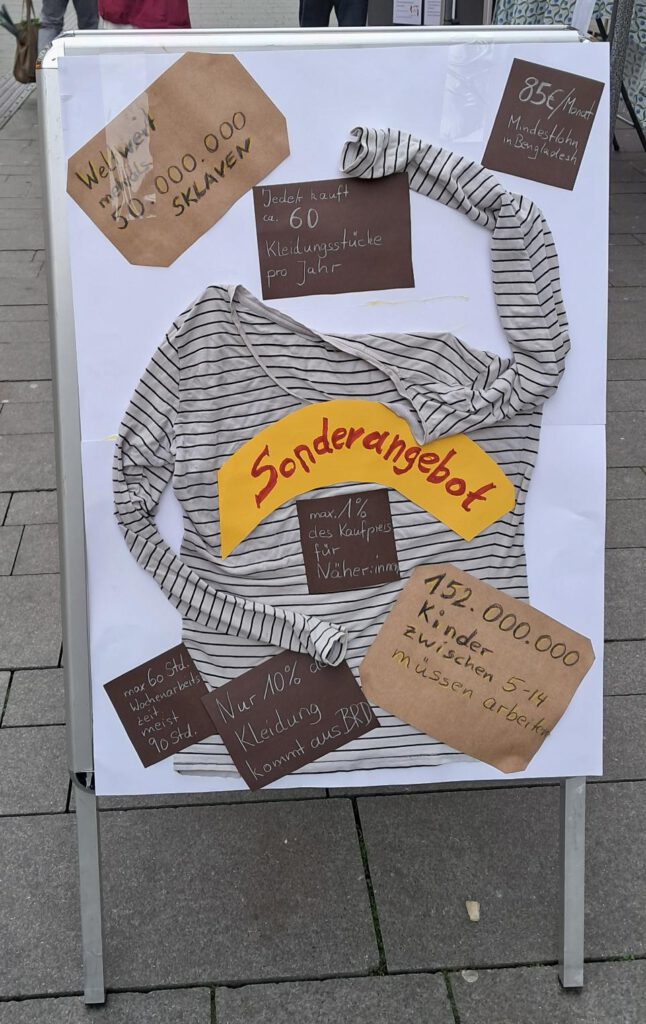 Weltweit
mehrals
50.000.000
SKLAVEN
85€/Monat
Mindestlohn
in Bengladesh
Jede/r kauft
ca. 60
Kleidungsstücke
pro Jahr
Sonderangebot
max. 1%
des Kaufpreis
für
Näher:innen
152.000.000
Kinder
zwischen 5-14
müssen arbeiten
max 60 Std.
Wochenarbeits
zeit
meist
90 Std.
Nur 10% der
Kleidung
kommt aus BRD